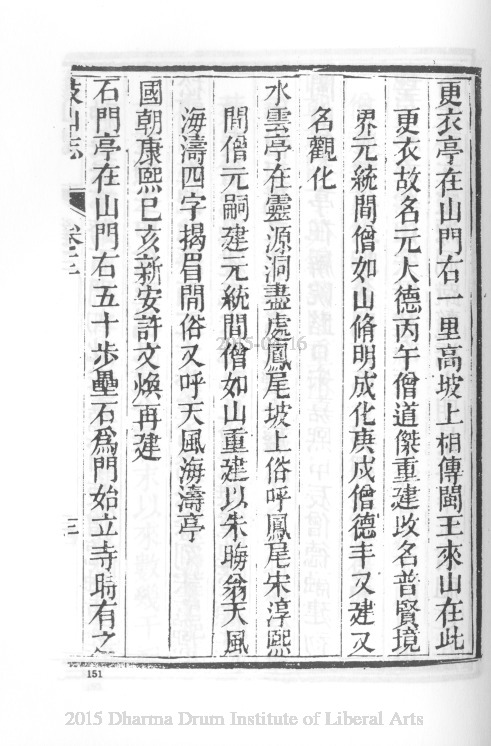 更衣亭在山門右一里高坡上相傳閩王來山在此
更衣故名元大德丙午僧道傑重建改名普賢境
界元統間僧如山脩明成化庚戌僧德丰又建又
名觀化
水雲亭在靈源洞盡處鳳尾坡上俗呼鳳尾宋淳熙
間僧元嗣建元統間僧如山重建以朱晦翁天風
海濤四字揭眉間俗又呼天風海濤亭
國朝康熙己亥新安許文煥再建
石門亭在山門右五十步壘石爲門始立寺時有之
鼓山志 卷之二 三
151
2015 Dharma Drum Institute of Liberal Arts